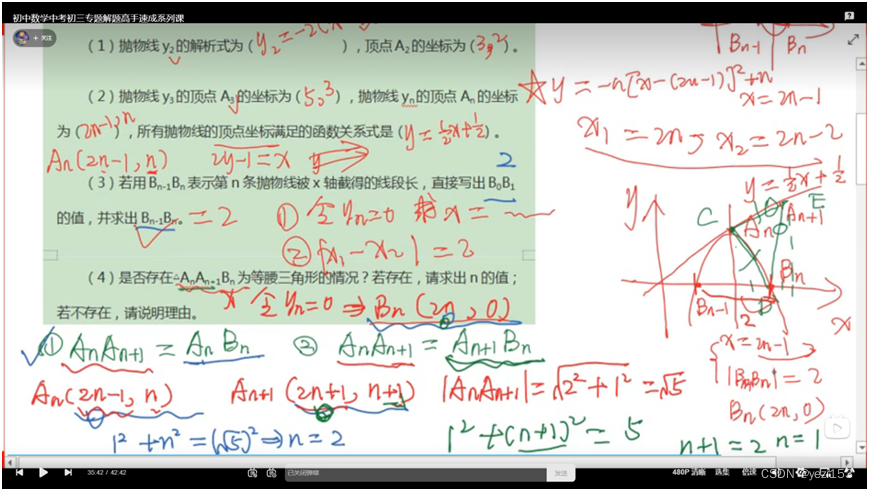 初中数学中考初三专题解题高手速成系列课
+ 关注
(1)抛物线y₂的解析式为(y₂=-2(x ),顶点A₂的坐标为(3,2)。
(2)抛物线y₃的顶点A₃的坐标为(5,3),抛物线yₙ的顶点Aₙ的坐标
为(2n-1,n),所有抛物线的顶点坐标满足的函数关系式是(y=½x+½)。
Aₙ(2n-1,n) 2y-1=x y
(3)若用Bₙ₋₁Bₙ表示第n条抛物线被x轴截得的线段长,直接写出B₀B₁
2
的值,并求出Bₙ₋₁Bₙ。=2 ①令yₙ=0 求x=
②|x₁-x₂|=2
(4)是否存在△AₙAₙ₊₁Bₙ为等腰三角形的情况?若存在,请求出n的值;
若不存在,请说明理由。 令yₙ=0⇒Bₙ(2n,0)
①AₙAₙ₊₁=AₙBₙ ②AₙAₙ₊₁=Aₙ₊₁Bₙ
Aₙ(2n-1,n) Aₙ₊₁(2n+1,n+1) |AₙAₙ₊₁|=√2²+1²=√5
1²+n²=(√5)²⇒n=2 1²+(n+1)²=5
n+1=2 n=1
Bₙ₋₁ Bₙ
☆y=-n[x-(2n-1)]²+n
x=2n-1
x₁=2n, x₂=2n-2
y=½x+½
y C Aₙ Aₙ₊₁ E
Bₙ₋₁ 2 D Bₙ x
x=2n-1
|Bₙ₋₁Bₙ|=2
Bₙ(2n,0)
35:42 / 42:42 已关闭弹幕 发送 480P 清晰 选集 倍速
CSDN @yezi152